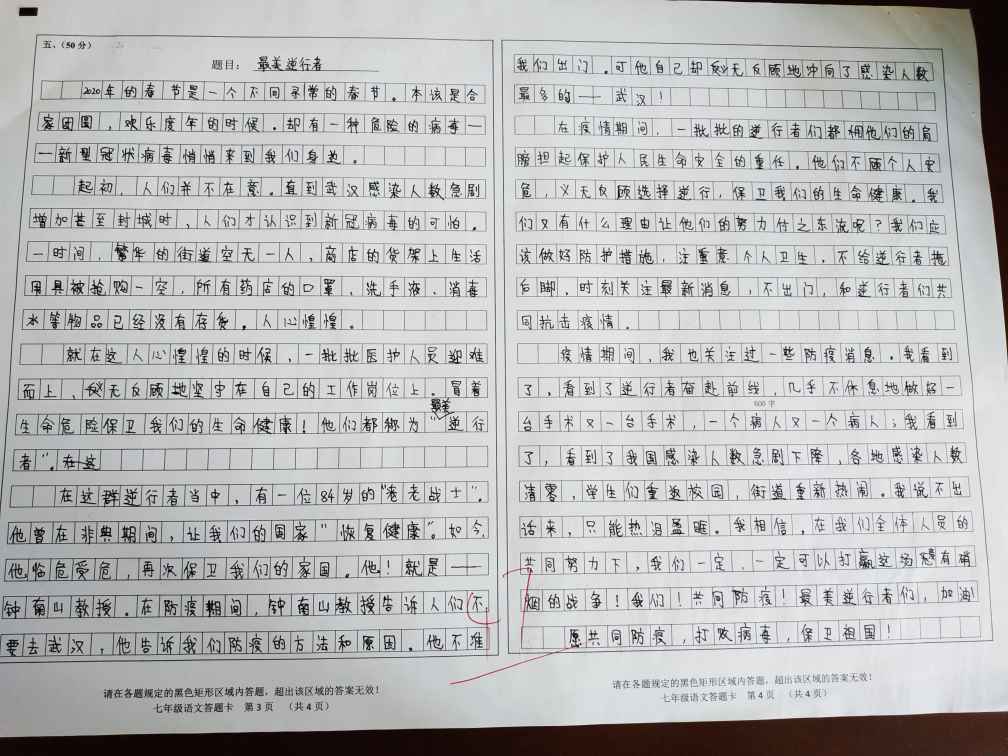 五、（50分）
题目：最美逆行者
2020年的春节是一个不同寻常的春节。本该是合
家团圆，欢乐度年的时候。却有一种危险的病毒一
一新型冠状病毒悄悄来到我们身边。
起初，人们并不在意。直到武汉感染人数急剧
增加甚至封城时，人们才认识到新冠病毒的可怕。
一时间，繁华的街道空无一人，商店的货架上生活
用具被抢购一空，所有药店的口罩、洗手液、消毒
水等物品已经没有存货。人心惶惶。
就在这人心惶惶的时候，一批批医护人员迎难
而上，义无反顾地坚守在自己的工作岗位上。冒着
最美
生命危险保卫我们的生命健康！他们都称为“逆行
者”。在这
在这群逆行者当中，有一位84岁的“老老战士”。
他曾在非典期间，让我们的国家“恢复健康”。如今，
他临危受危，再次保卫我们的家国。他！就是——
钟南山教授。在防疫期间，钟南山教授告诉人们不
要去武汉，他告诉我们防疫的方法和原因。他不准
请在各题规定的黑色矩形区域内答题，超出该区域的答案无效！
七年级语文答题卡 第3页 （共4页）
我们出门。可他自己却义无反顾地冲向了感染人数
最多的——武汉！
在疫情期间，一批批的逆行者们都用他们的肩
膀担起保护人民生命安全的重任。他们不顾个人安
危，义无反顾选择逆行，保卫我们的生命健康。我
们又有什么理由让他们的努力付之东流呢？我们应
该做好防护措施，注重意个人卫生，不给逆行者拖
后脚，时刻关注最新消息，不出门，和逆行者们共
同抗击疫情。
疫情期间，我也关注过一些防疫消息。我看到
了，看到了逆行者奋赴前线，几乎不休息地做好一
600字
台手术又一台手术，一个病人又一个病人；我看到
了，看到了我国感染人数急剧下降，各地感染人数
清零，学生们重返校园，街道重新热闹。我说不出
话来，只能热泪盈眶。我相信，在我们全体人员的
共同努力下，我们一定，一定可以打赢这场没有硝
烟的战争！我们！共同防疫！最美逆行者们，加油！
愿共同防疫，打败病毒，保卫祖国！
请在各题规定的黑色矩形区域内答题，超出该区域的答案无效！
七年级语文答题卡 第4页 （共4页）